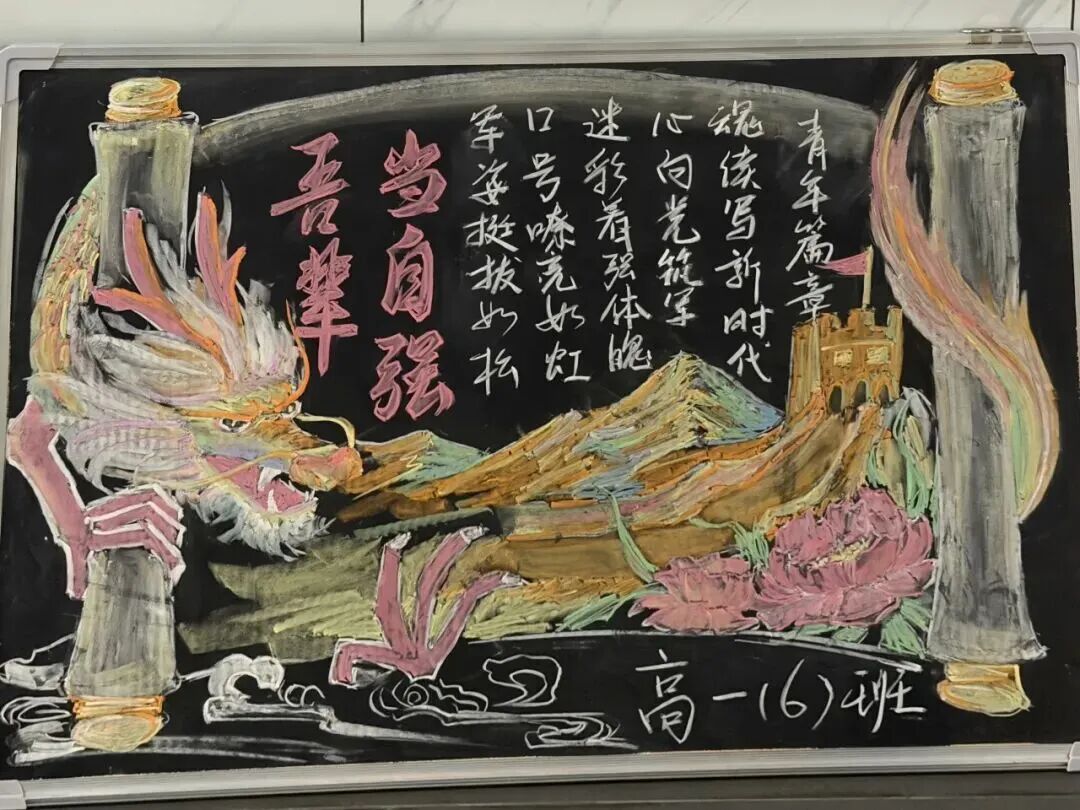 吾辈
当自强
军姿挺拔如松
口号嘹亮如虹
迷彩着强体魄
心向光筑军
魂续写新时代
青年篇章
高一(6)班